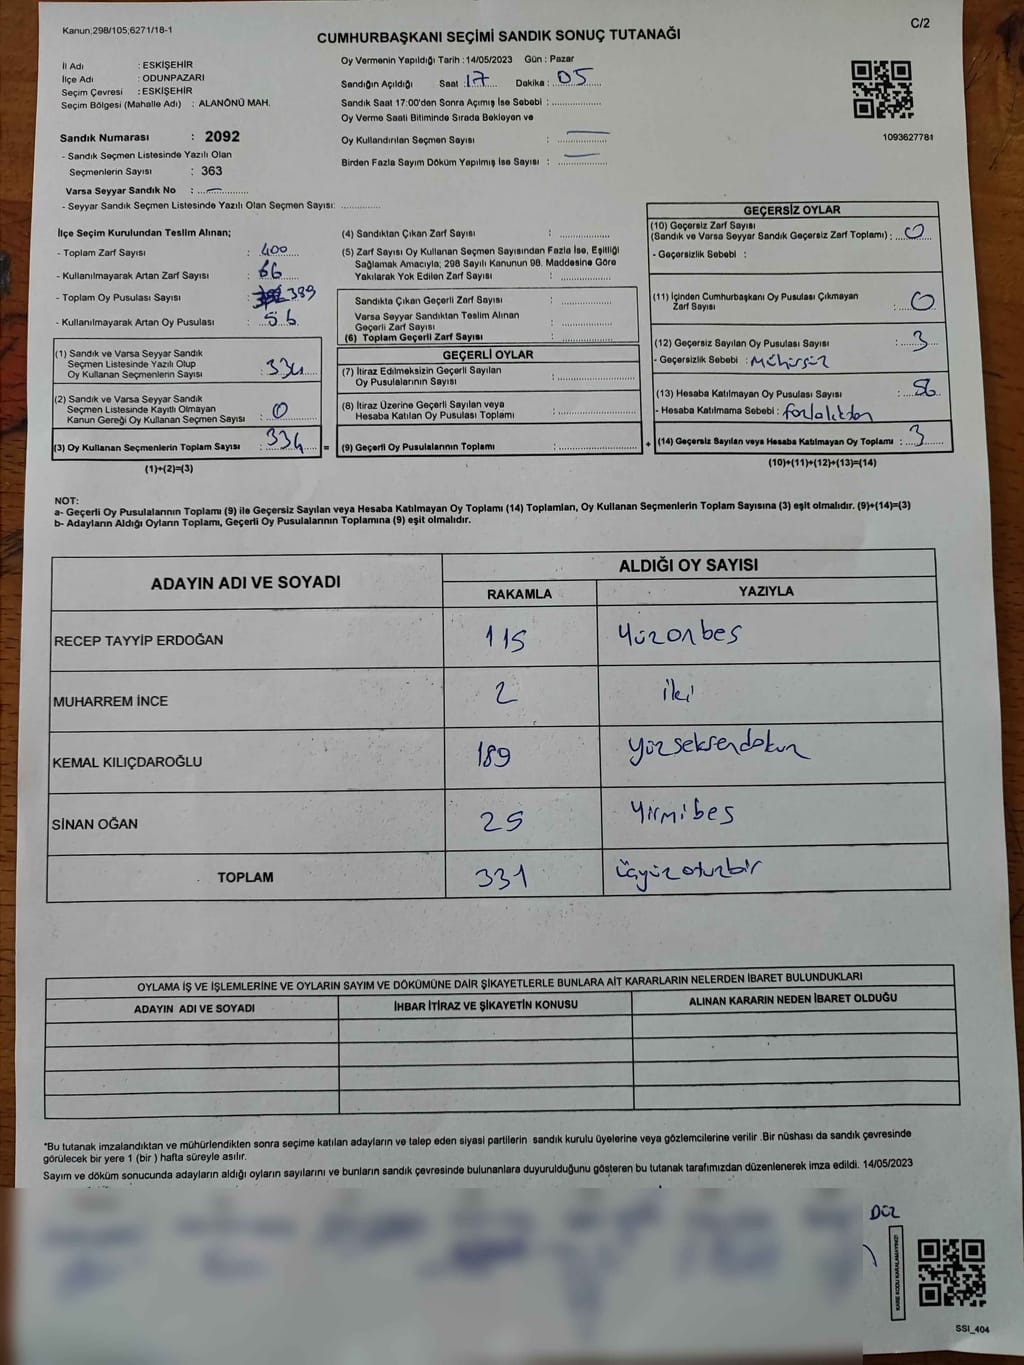 Kanun:298/105;6271/18-1
C/2
CUMHURBAŞKANI SEÇİMİ SANDIK SONUÇ TUTANAĞI
İl Adı : ESKİŞEHİR
İlçe Adı : ODUNPAZARI
Seçim Çevresi : ESKİŞEHİR
Seçim Bölgesi (Mahalle Adı) : ALANÖNÜ MAH.
Oy Vermenin Yapıldığı Tarih :14/05/2023 Gün : Pazar
Sandığın Açıldığı Saat :17 Dakika : 05
Sandık Saat 17:00'den Sonra Açımış İse Sebebi :
Oy Verme Saati Bitiminde Sırada Bekleyen ve
Oy Kullandırılan Seçmen Sayısı :
Birden Fazla Sayım Döküm Yapılmış İse Sayısı :
1093627781
Sandık Numarası : 2092
- Sandık Seçmen Listesinde Yazılı Olan
Seçmenlerin Sayısı : 363
Varsa Seyyar Sandık No :
- Seyyar Sandık Seçmen Listesinde Yazılı Olan Seçmen Sayısı:
İlçe Seçim Kurulundan Teslim Alınan;
- Toplam Zarf Sayısı : 400
- Kullanılmayarak Artan Zarf Sayısı : 66
- Toplam Oy Pusulası Sayısı : 389
- Kullanılmayarak Artan Oy Pusulası : 56
(1) Sandık ve Varsa Seyyar Sandık
Seçmen Listesinde Yazılı Olup
Oy Kullanan Seçmenlerin Sayısı : 334
(2) Sandık ve Varsa Seyyar Sandık
Seçmen Listesinde Kayıtlı Olmayan
Kanun Gereği Oy Kullanan Seçmen Sayısı : 0
(3) Oy Kullanan Seçmenlerin Toplam Sayısı : 334
(1)+(2)=(3)
(4) Sandıktan Çıkan Zarf Sayısı :
(5) Zarf Sayısı Oy Kullanan Seçmen Sayısından Fazla İse, Eşitliği
Sağlamak Amacıyla, 298 Sayılı Kanunun 98. Maddesine Göre
Yakılarak Yok Edilen Zarf Sayısı :
Sandıkta Çıkan Geçerli Zarf Sayısı :
Varsa Seyyar Sandıktan Teslim Alınan
Geçerli Zarf Sayısı :
(6) Toplam Geçerli Zarf Sayısı :
GEÇERLİ OYLAR
(7) İtiraz Edilmeksizin Geçerli Sayılan
Oy Pusulalarının Sayısı :
(8) İtiraz Üzerine Geçerli Sayılan veya
Hesaba Katılan Oy Pusulası Toplamı :
= (9) Geçerli Oy Pusulalarının Toplamı :
GEÇERSİZ OYLAR
(10) Geçersiz Zarf Sayısı
(Sandık ve Varsa Seyyar Sandık Geçersiz Zarf Toplamı) : 0
- Geçersizlik Sebebi :
(11) İçinden Cumhurbaşkanı Oy Pusulası Çıkmayan
Zarf Sayısı : 0
(12) Geçersiz Sayılan Oy Pusulası Sayısı : 3
- Geçersizlik Sebebi : Mühürsüz
(13) Hesaba Katılmayan Oy Pusulası Sayısı : 56
- Hesaba Katılmama Sebebi : fazlalıktan
+ (14) Geçersiz Sayılan veya Hesaba Katılmayan Oy Toplamı : 3
(10)+(11)+(12)+(13)=(14)
NOT:
a- Geçerli Oy Pusulalarının Toplamı (9) ile Geçersiz Sayılan veya Hesaba Katılmayan Oy Toplamı (14) Toplamları, Oy Kullanan Seçmenlerin Toplam Sayısına (3) eşit olmalıdır. (9)+(14)=(3)
b- Adayların Aldığı Oyların Toplamı, Geçerli Oy Pusulalarının Toplamına (9) eşit olmalıdır.
ADAYIN ADI VE SOYADI
ALDIĞI OY SAYISI
RAKAMLA YAZIYLA
RECEP TAYYİP ERDOĞAN 115 Yüzonbeş
MUHARREM İNCE 2 iki
KEMAL KILIÇDAROĞLU 189 yüzseksendokuz
SİNAN OĞAN 25 Yirmibeş
TOPLAM 331 üçyüzotuzbir
OYLAMA İŞ VE İŞLEMLERİNE VE OYLARIN SAYIM VE DÖKÜMÜNE DAİR ŞİKAYETLERLE BUNLARA AİT KARARLARIN NELERDEN İBARET BULUNDUKLARI
ADAYIN ADI VE SOYADI İHBAR İTİRAZ VE ŞİKAYETİN KONUSU ALINAN KARARIN NEDEN İBARET OLDUĞU
*Bu tutanak imzalandıktan ve mühürlendikten sonra seçime katılan adayların ve talep eden siyasi partilerin sandık kurulu üyelerine veya gözlemcilerine verilir .Bir nüshası da sandık çevresinde
görülecek bir yere 1 (bir ) hafta süreyle asılır.
Sayım ve döküm sonucunda adayların aldığı oyların sayılarını ve bunların sandık çevresinde bulunanlara duyurulduğunu gösteren bu tutanak tarafımızdan düzenlenerek imza edildi. 14/05/2023
KARE KODU KARALAMAYINIZ!
SSI_404